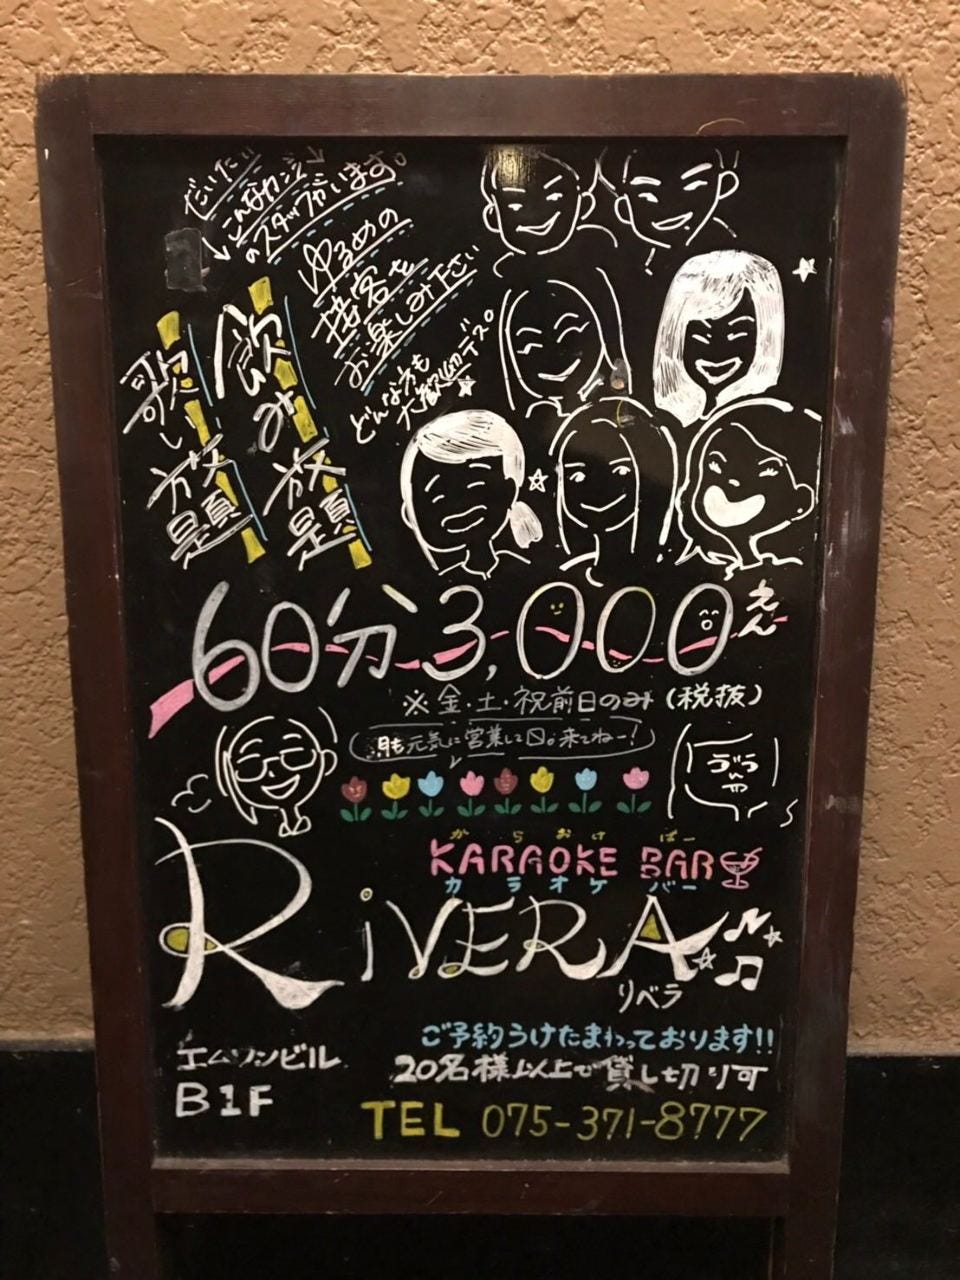 だいたい
こんなカンジ
のスタッフがいます。
ゆるめの
接客を
お楽しみ下さい
どんな方も
大歓迎デス。
飲み放題
歌い放題
60分3,000えん
※金・土・祝前日のみ(税抜)
元気に営業して
来てねー!
からおけ ばー
KARAOKE BAR
カラオケ バー
RiVERA
リベラ
ご予約うけたまわっております!!
20名様以上で貸し切り可
ビル
B1F
TEL 075-371-8777